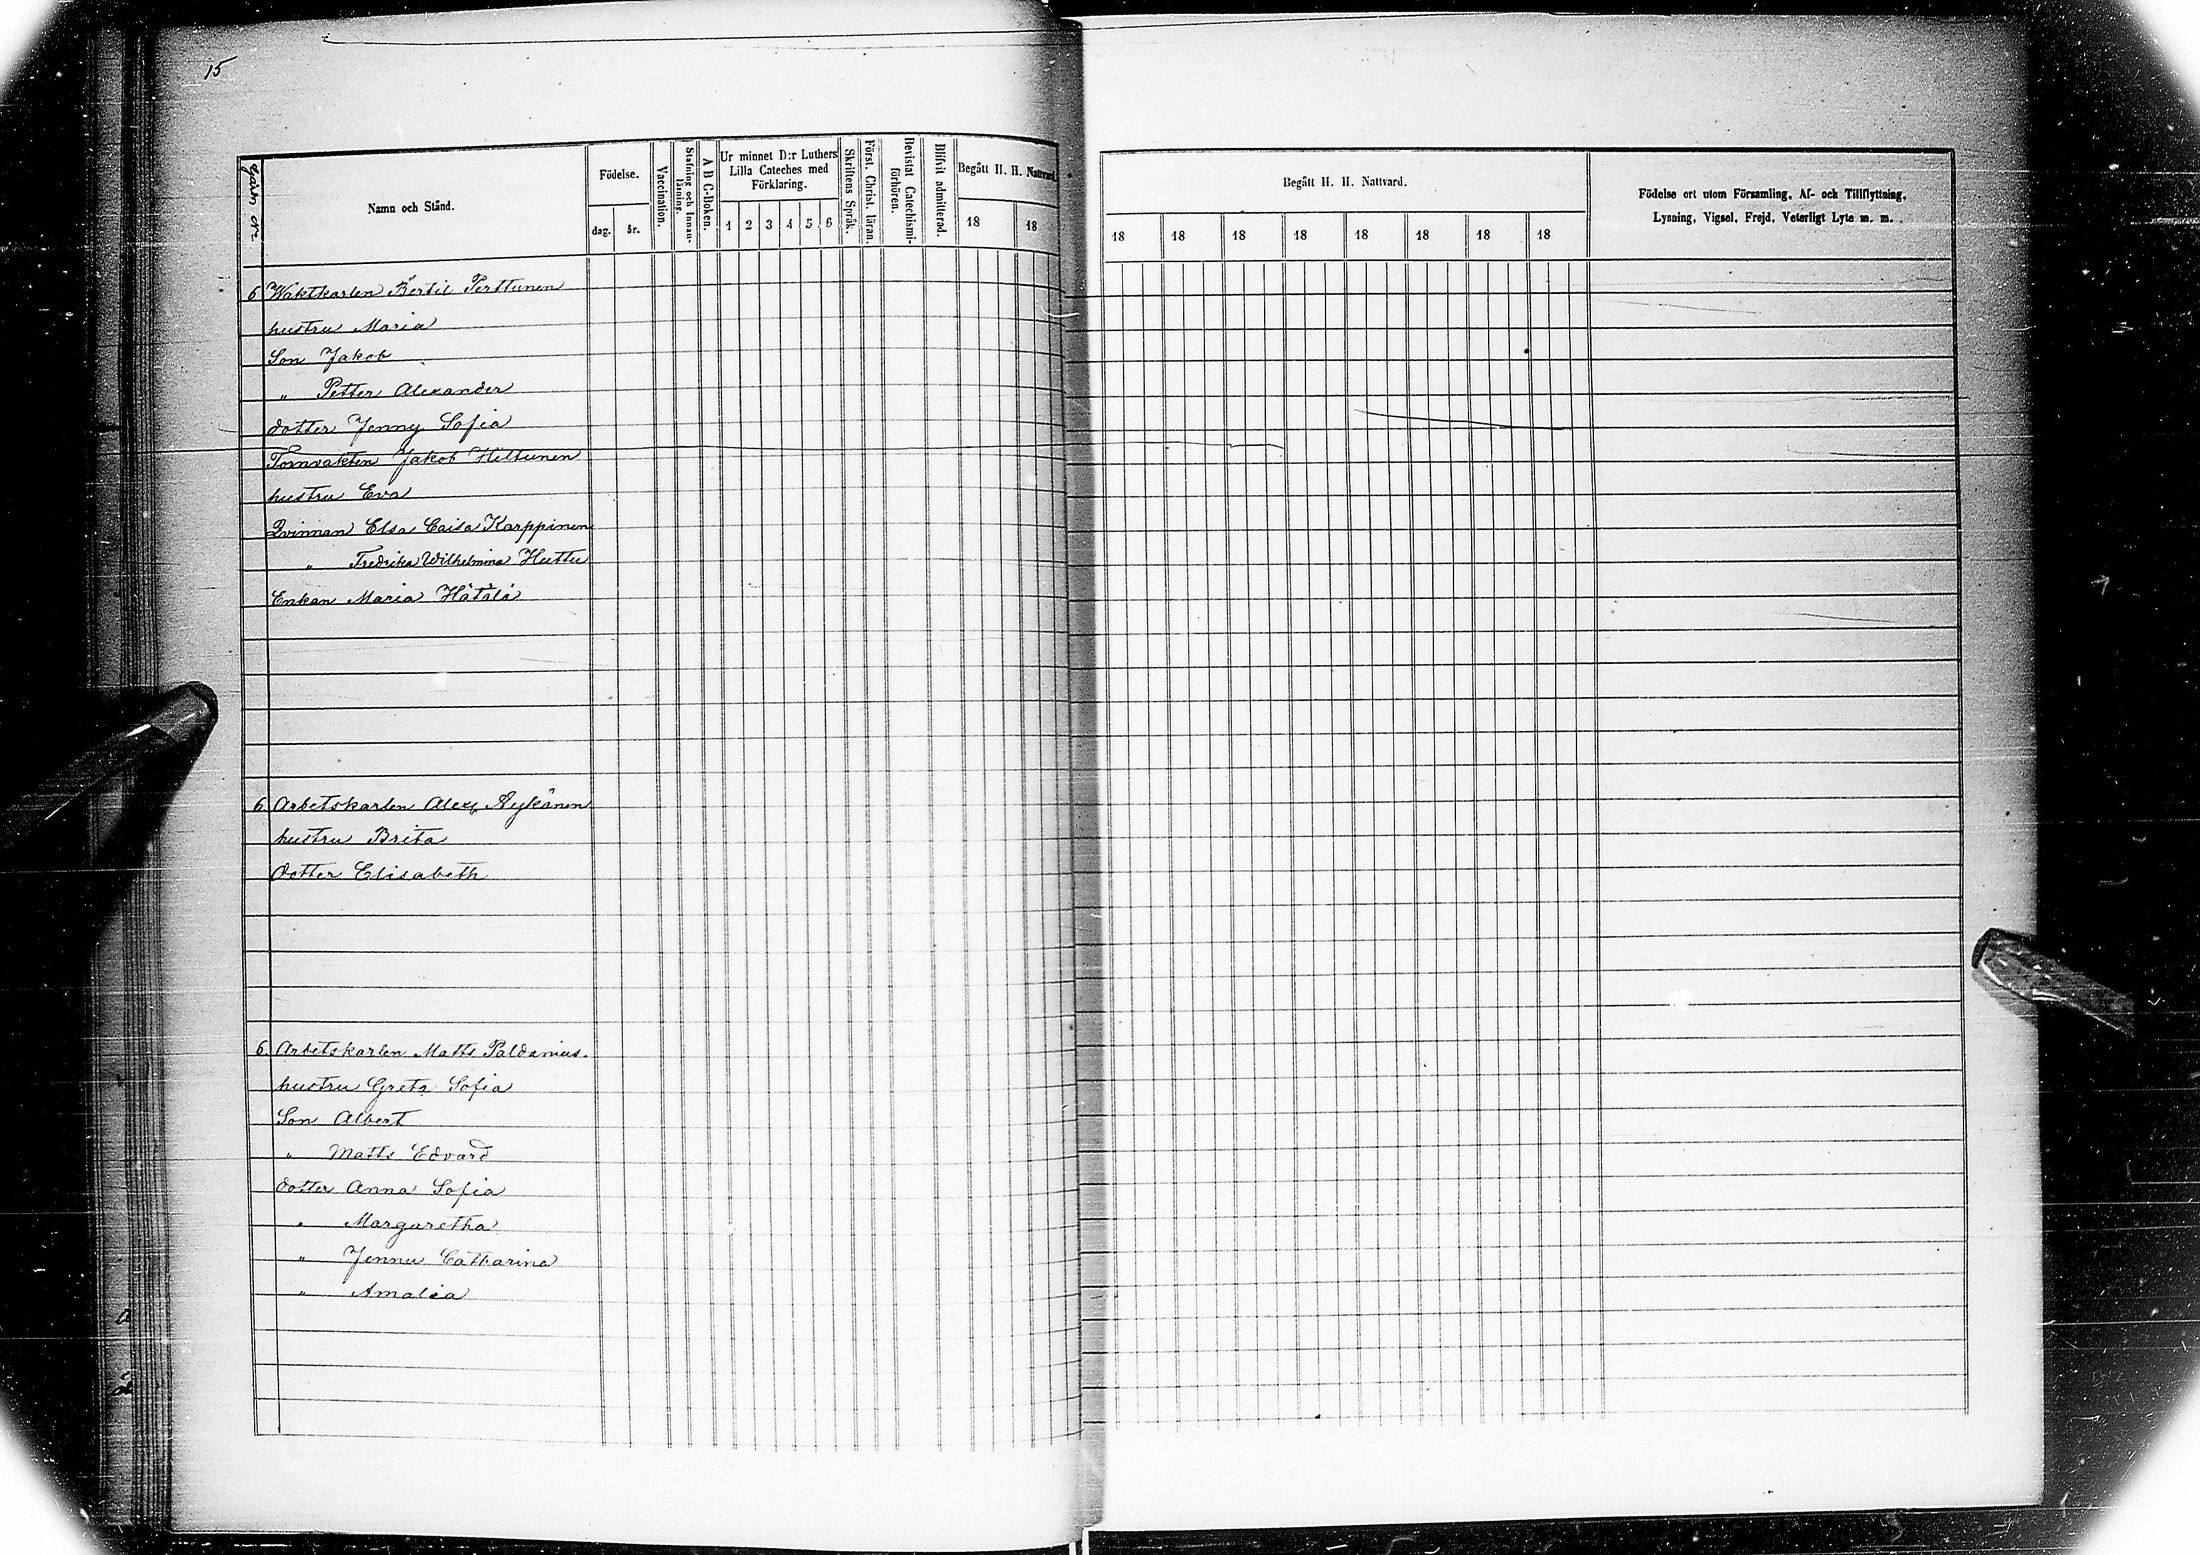 15
gård n:r
Namn och Stånd.
Födelse.
dag.
år.
Vaccination.
Stafning och Innan-
läsning.
A B C-Boken.
Ur minnet D:r Luthers
Lilla Cateches med
Förklaring.
1 2 3 4 5 6
Skriftens Språk.
Först. Christ. läran.
Bevistat Catechismi-
förhören.
Blifvit admitterad.
Begått H. H. Nattvard.
18 18
Begått H. H. Nattvard.
18 18 18 18 18 18 18 18
Födelse ort utom Församling, Af- och Tillflyttning,
Lysning, Vigsel, Frejd, Veterligt Lyte m. m.
6 Waktkarlen Bertil Perttunen
hustru Maria
Son Jakob
„ Petter Alexander
dotter Jenny Sofia
Tornvakten Jakob Hiltunen
hustru Eva
Qvinnan Elsa Caisa Karppinen
„ Fredrika Wilhelmina Huttu
Enkan Maria Hätälä
6 Arbetskarlen Alex Rykänen
hustru Brita
dotter Elisabeth
6 Arbetskarlen Matts Paldanius.
hustru Greta Sofia
Son Albert
„ Matts Edvard
dotter Anna Sofia
„ Margaretha
„ Jenny Catharina
„ Amalia